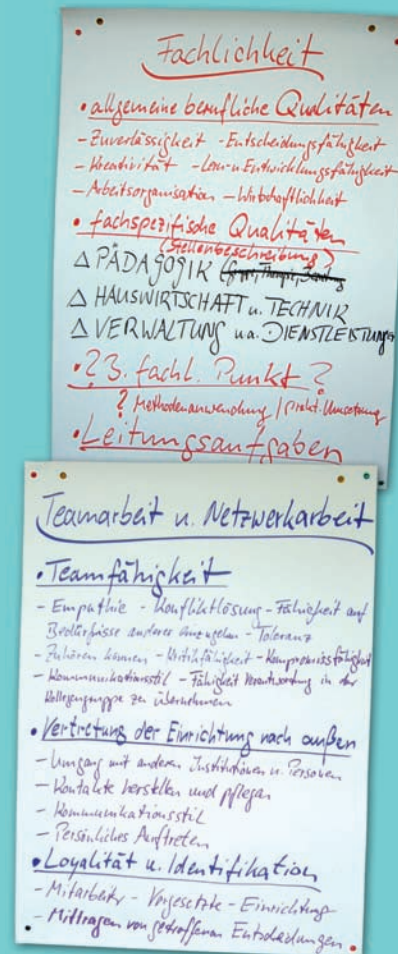 Fachlichkeit
• allgemeine berufliche Qualitäten
- Zuverlässigkeit - Entscheidungsfähigkeit
- Kreativität - Lern- u Entwicklungsfähigkeit
- Arbeitsorganisation - Wirtschaftlichkeit
• fachspezifische Qualitäten
(Stellenbeschreibung)
△ PÄDAGOGIK (Gruppe, Therapie, Beratung
△ HAUSWIRTSCHAFT u. TECHNIK
△ VERWALTUNG u.a. DIENSTLEISTUNGEN
• ? 3. fachl. Punkt ?
? Methodenanwendung / prakt. Umsetzung
• Leitungsaufgaben
Teamarbeit u. Netzwerkarbeit
• Teamfähigkeit
- Empathie - Konfliktlösung - Fähigkeit auf
Bedürfnisse anderer einzugehen - Toleranz
- Zuhören können - Kritikfähigkeit - Kompromissfähigkeit
- Kommunikationsstil - Fähigkeit Verantwortung in der
Kollegengruppe zu übernehmen
• Vertretung der Einrichtung nach außen
- Umgang mit anderen Institutionen u. Personen
- Kontakte herstellen und pflegen
- Kommunikationsstil
- Persönliches Auftreten
• Loyalität u. Identifikation
- Mitarbeiter - Vorgesetzte - Einrichtung
- Mittragen von getroffenen Entscheidungen